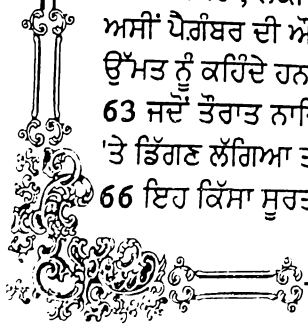 ਅਸੀਂ ਪੈਗ਼ੰਬਰ ਦੀ
ਉੱਮਤ ਨੂੰ ਕਹਿੰਦੇ ਹਨ
63 ਜਦੋਂ ਤੌਰਾਤ
'ਤੇ ਡਿੱਗਣ ਲੱਗਿਆ
66 ਇਹ ਕਿੱਸਾ ਸੂਰਤ